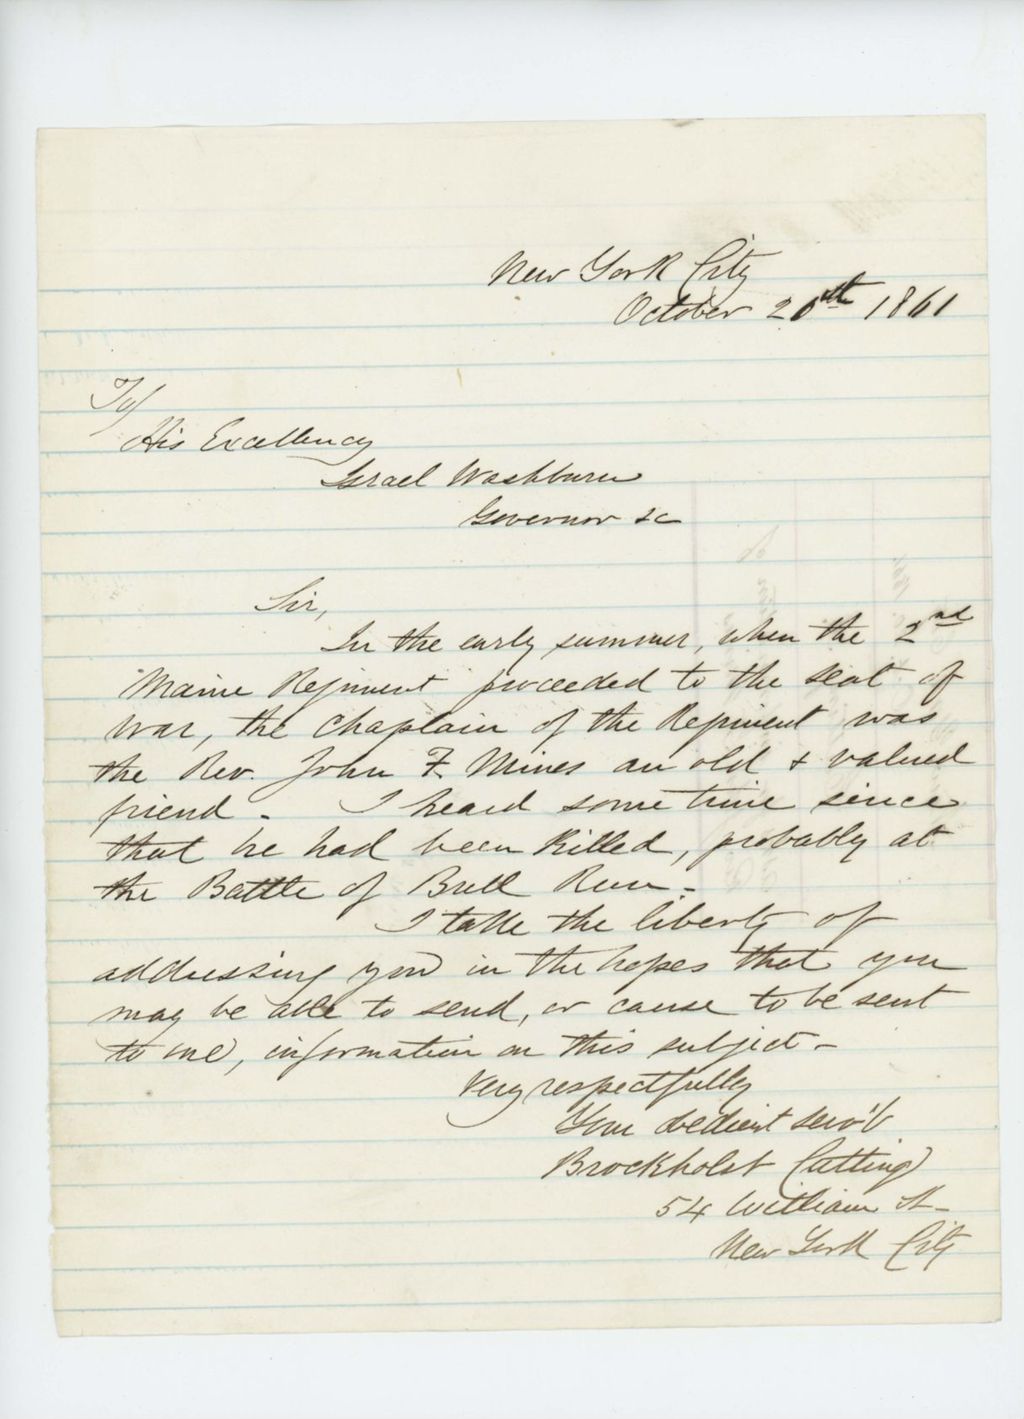 New York City
October 20th 1861
To/
His Excellency
Israel Washburn
Governor &c
Sir,
In the early summer, when the 2nd
Maine Regiment proceeded to the seat of
war, the chaplain of the Regiment was
the Rev. John F. Mines an old & valued
friend - I heard some time since
that he had been killed, probably at
the Battle of Bull Run -
I take the liberty of
addressing you in the hopes that you
may be able to send, or cause to be sent
to me, information on this subject -
Very respectfully
Your obedient serv't
Brockholst Cutting
54 William St -
New York City